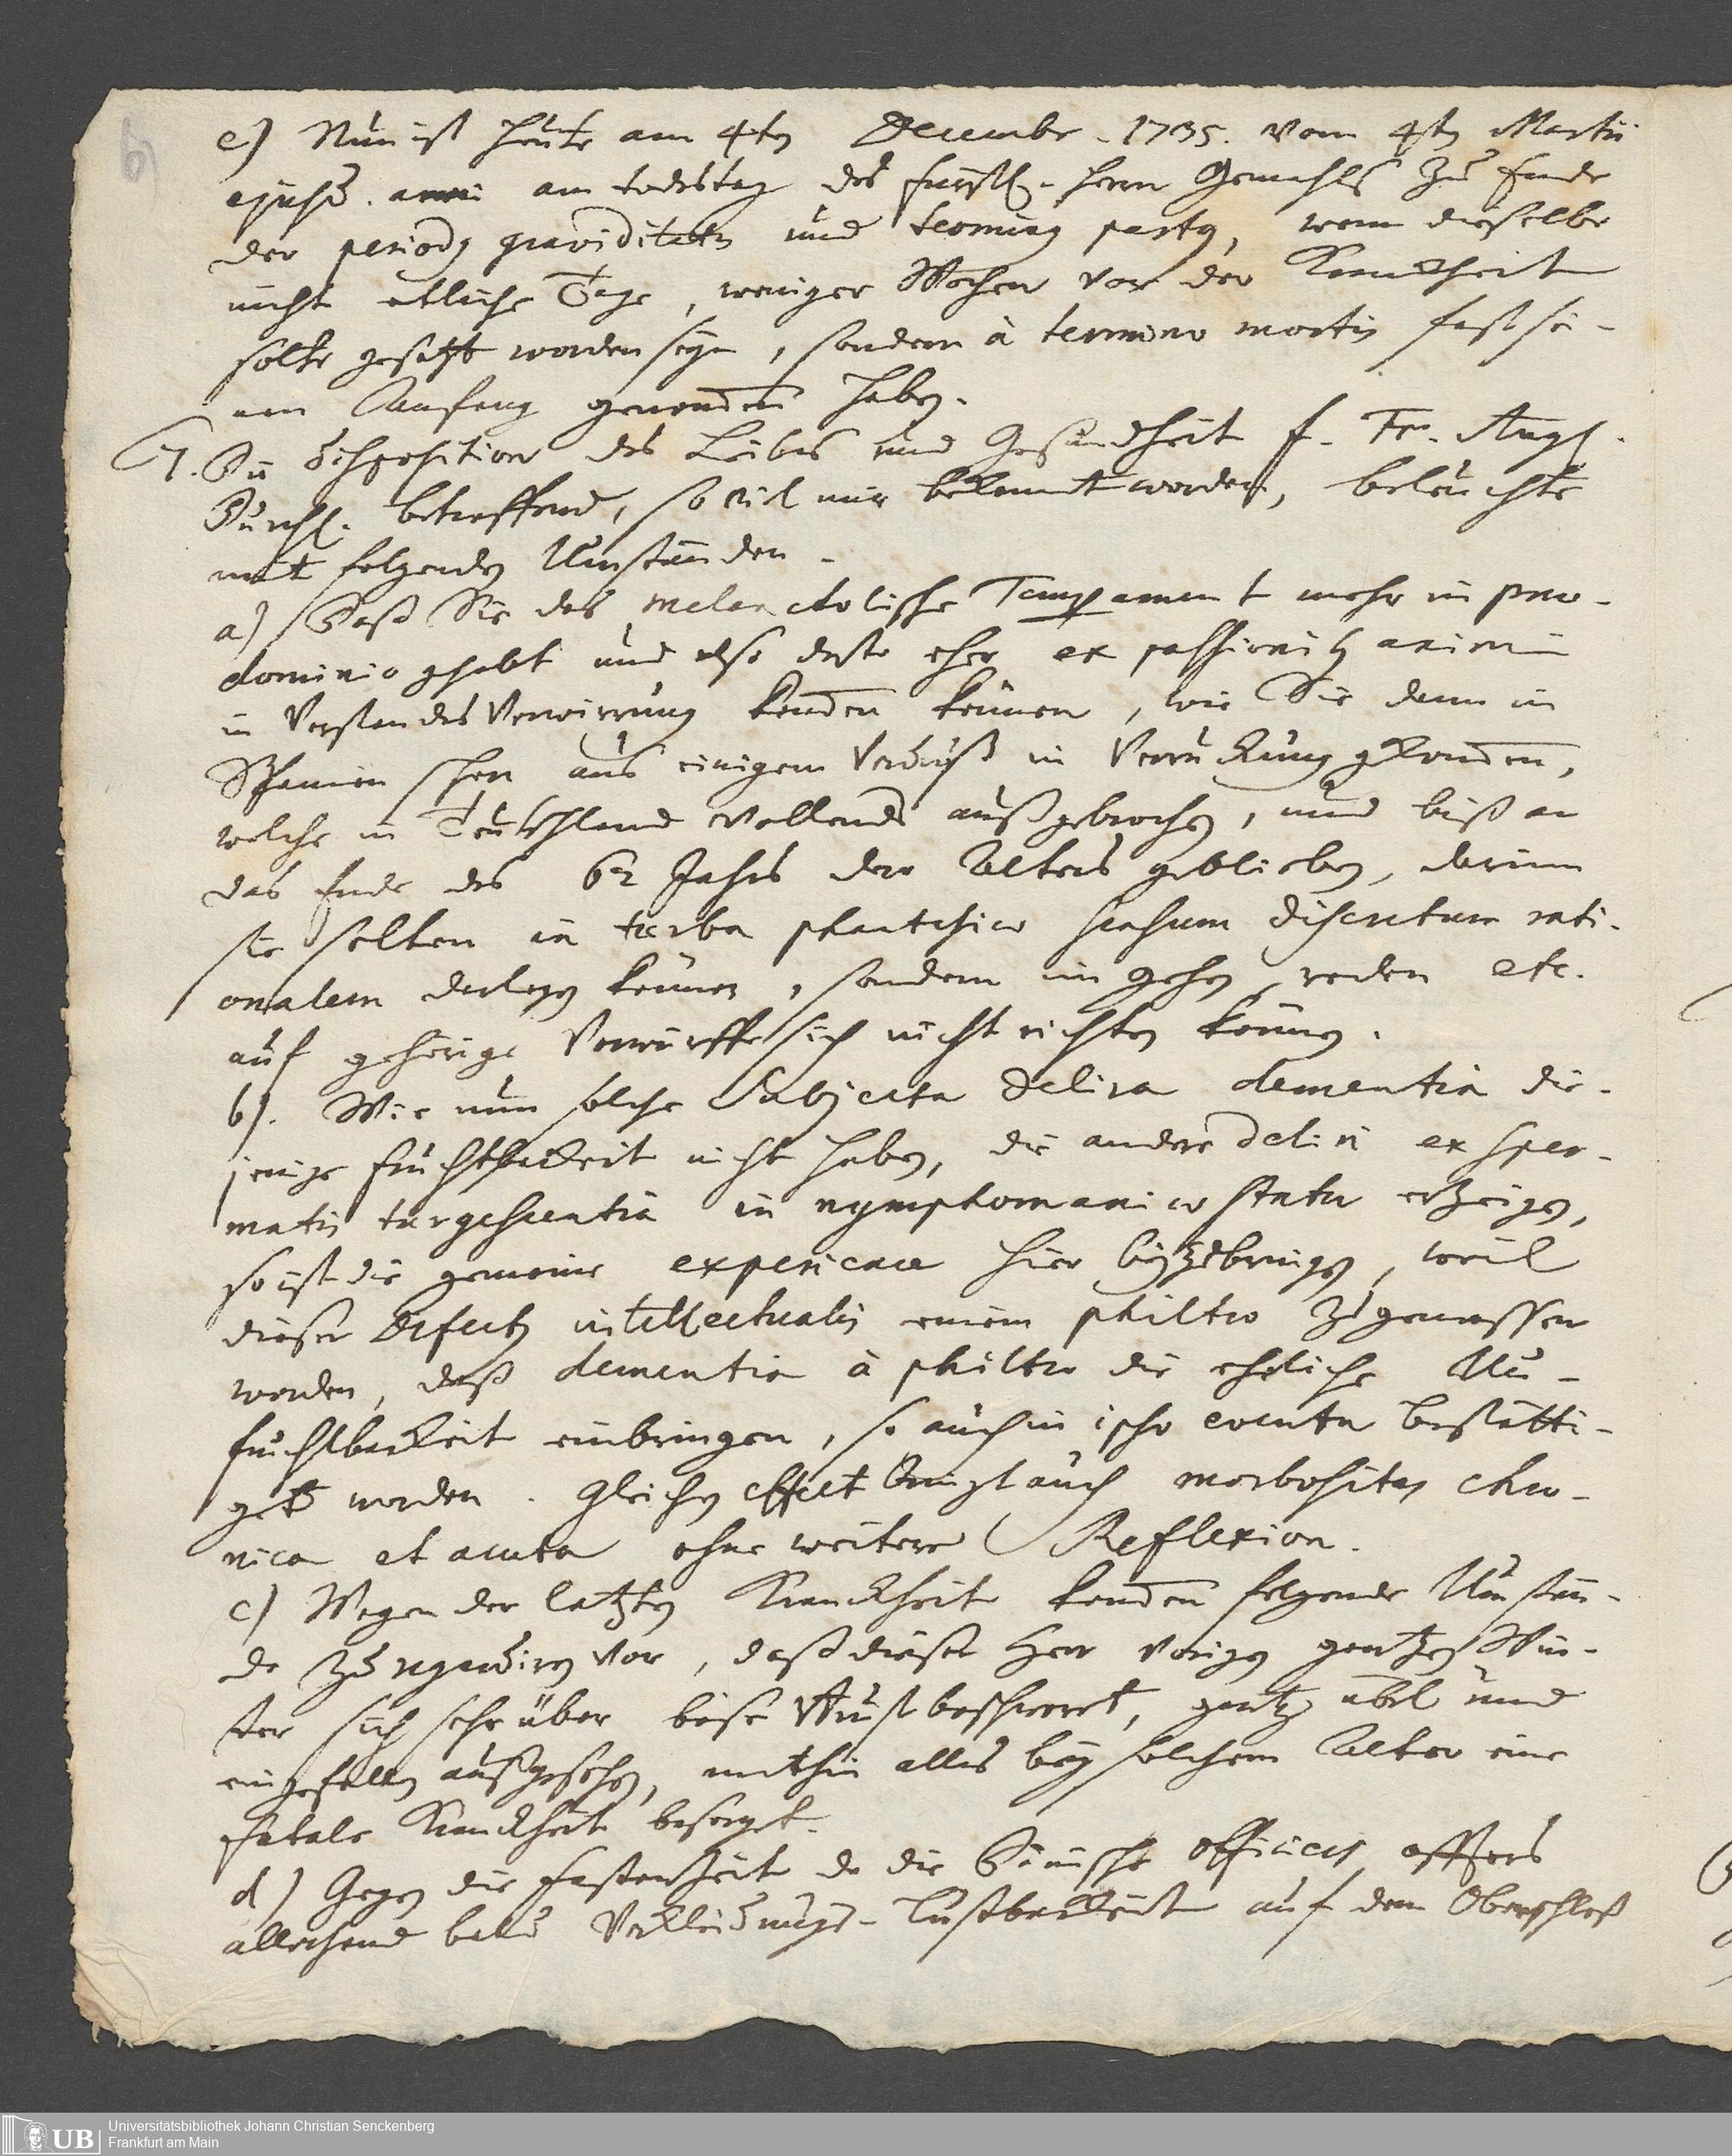 6)
e) Nun ist heute am 4ten December. 1735. vom 4ten Martii
ejusd. anni am todestag des fürstl. Herrn Gemahls zu Ende
der periodus graviditatis und terminus partus, wenn dieselbe
nicht etliche Tage, weniger Wochen vor der Kranckheit
solte gesetzt worden seyn, sondern à termino mortis fast sei-
nen Anfang genommen haben.
7. Die disposition des Leibes und Gesundheit f. Fr. Aug.
Durchl. betreffend, so viel mir bekannt worden, beleuchte
mit folgenden Umständen.
a) Daß Sie das melancholische Temperament mehr in prae-
dominio gehabt und also desto eher ex passionib. animi
in Verstandes Verwirrung kommen können, wie Sie dann in
Spanien schon aus einigem Verdruß in Verruckung gekommen,
welche in Teutschland vollends außgebrochen, und biß an
das Ende des 62 Jahrs der Alters geblieben, darinn
sie selten in turba phantasiae sensum discretum rati-
onalem darlegen können, sondern im gehen, reden etc.
auf gehörige Vorwürffe sich nicht richten können.
b). Wie nun solche Subjecta delira dementia die-
jenige fruchtbarkeit nicht haben, die andere deliri ex sper-
matis turgescentia in nymphomanico statu erzeigen,
so ist die gemeine experience hier beyzubringen, weil
dieser Defectus intellectualis einem philtro zugemessen
worden, daß dementia à philtro die eheliche Un-
fruchtbarkeit einbringen, so auch in ipso eventu bestätti-
get worden. Gleichen effect bringt auch morbositas chro-
nica et acuta ohne weitere Reflexion.
c) Wegen der letzten Kranckheit kommen folgende Umstän-
de zu regardiren vor, daß dieser Herr vorigen gantzen Win-
ter sich sehr über böse Brust beschwert, gantz übel und
eingefallen außgesehen, mithin alles bey solchem Alter eine
fatale Kranckheit besorget.
d) Gegen die fastenZeit da die Officiers öffters
allerhand Verkleidungs-Lustbarkeit auf dem Oberschloß
Universitätsbibliothek Johann Christian Senckenberg
Frankfurt am Main
UB